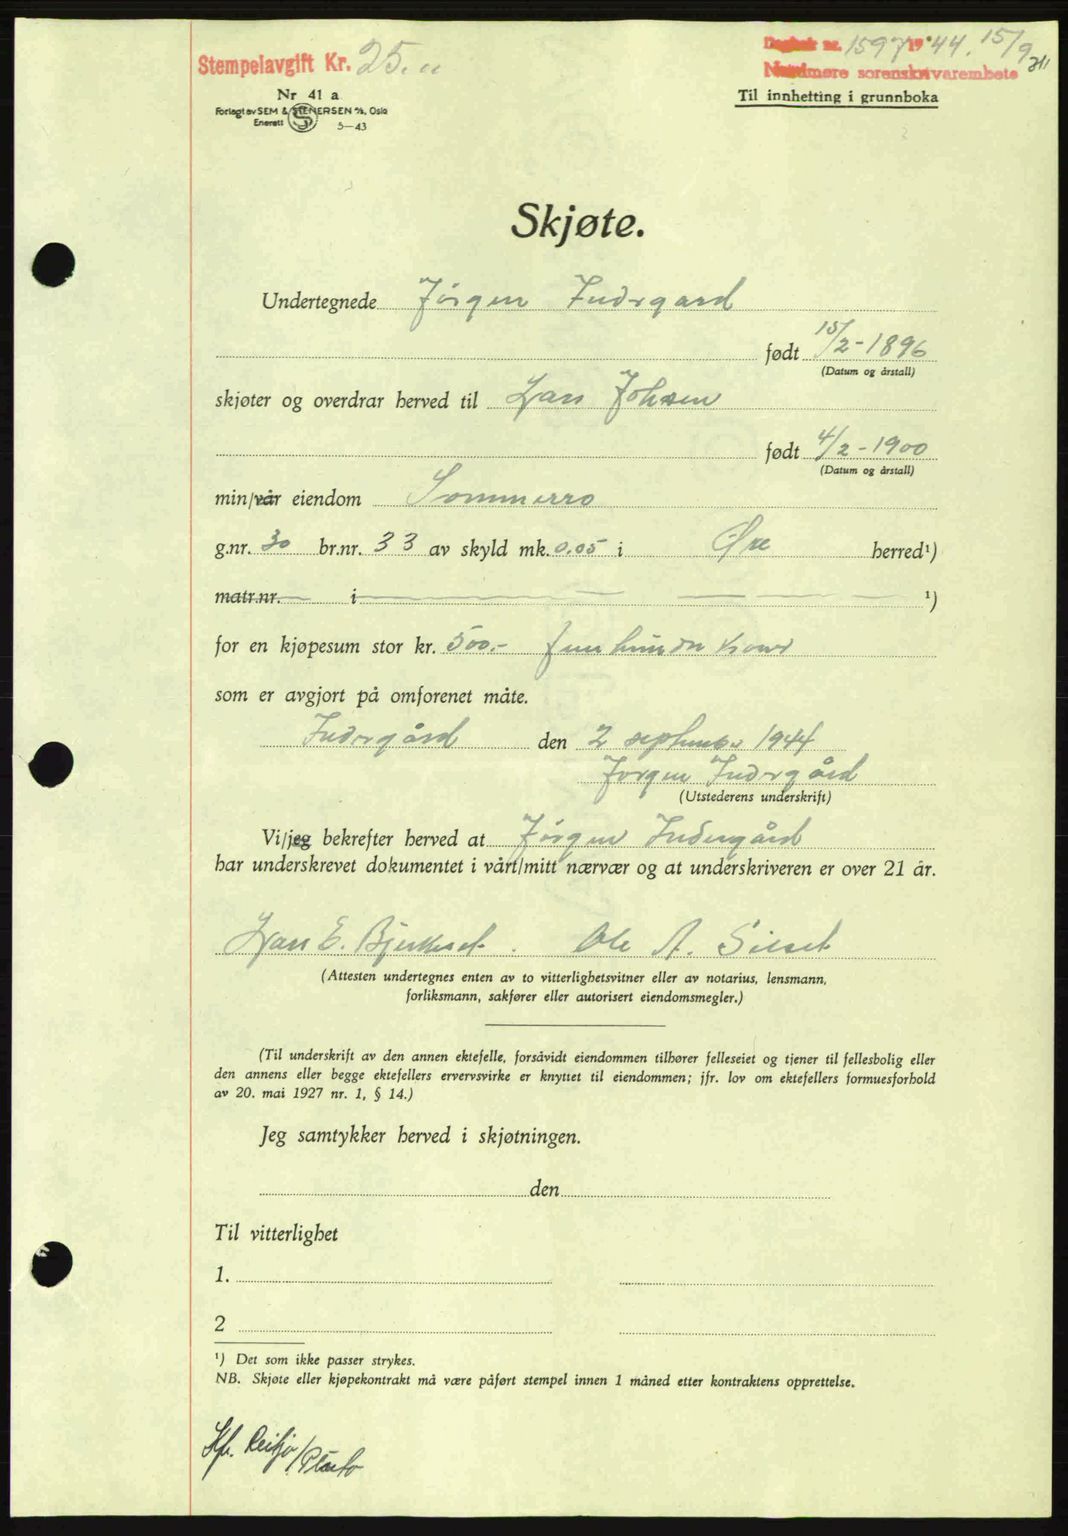 Stempelavgift Kr. 25.
Dagbok nr. 1597 1944. 15/9
Nordmøre sorenskriverembete
Til innhefting i grunnboka
Nr 41 a
Forlagt av SEM & STENERSEN A/S, Oslo
Enerett S 5—43
Skjøte.
Undertegnede Jörgen Indergaard
født 15/2-1896
(Datum og årstall)
skjøter og overdrar herved til Lars Johsen
født 4/2-1900
(Datum og årstall)
min/vår eiendom Sommerro
g.nr. 30 br.nr. 33 av skyld mk. 0.05 i Øre herred¹)
matr.nr. i ¹)
for en kjøpesum stor kr. 500.- femhundre kroner
som er avgjort på omforenet måte.
Indergård den 2 september 1944
Jørgen Indergård
(Utstederens underskrift)
Vi/jeg bekrefter herved at Jörgen Indergård
har underskrevet dokumentet i vårt/mitt nærvær og at underskriveren er over 21 år.
Lars E. Bjerkeset. Ole A. Silset
(Attesten undertegnes enten av to vitterlighetsvitner eller av notarius, lensmann,
forliksmann, sakfører eller autorisert eiendomsmegler.)
(Til underskrift av den annen ektefelle, forsåvidt eiendommen tilhører felleseiet og tjener til fellesbolig eller
den annens eller begge ektefellers ervervsvirke er knyttet til eiendommen; jfr. lov om ektefellers formuesforhold
av 20. mai 1927 nr. 1, § 14.)
Jeg samtykker herved i skjøtningen.
den
Til vitterlighet
1.
2
¹) Det som ikke passer strykes.
NB. Skjøte eller kjøpekontrakt må være påført stempel innen 1 måned etter kontraktens opprettelse.